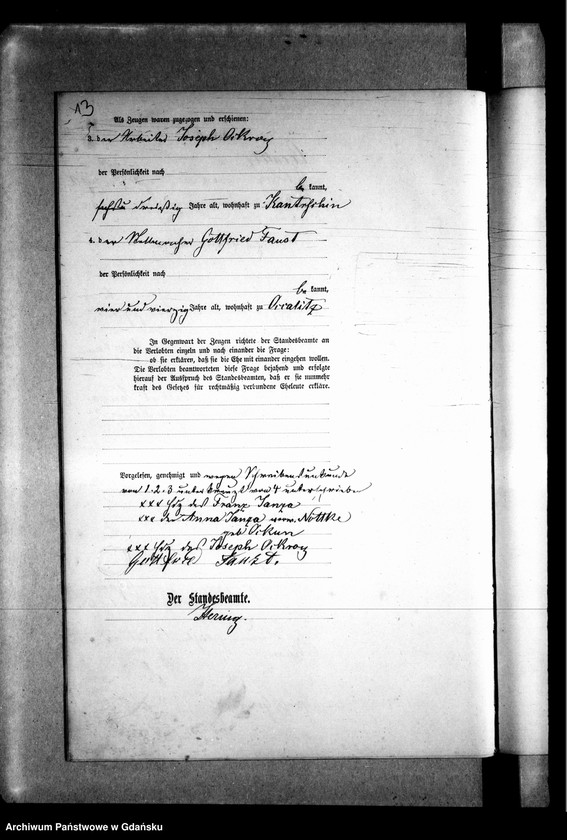 13
Als Zeugen waren zugezogen und erschienen:
3. der Arbeiter Joseph
der Persönlichkeit nach
be kannt,
sechs und dreißig Jahre alt, wohnhaft zu
4. der Gottfried Faust
der Persönlichkeit nach
be kannt,
vier und vierzig Jahre alt, wohnhaft zu Occalitz
In Gegenwart der Zeugen richtete der Standesbeamte an
die Verlobten einzeln und nach einander die Frage:
ob sie erklären, daß sie die Ehe mit einander eingehen wollen.
Die Verlobten beantworteten diese Frage bejahend und erfolgte
hierauf der Ausspruch des Standesbeamten, daß er sie nunmehr
kraft des Gesetzes für rechtmäßig verbundene Eheleute erkläre.
Vorgelesen, genehmigt und wegen Schreibensunkunde
von 1. 2. 3 unterkreuzt von 4 unterschrieben
xxx Hdz des Franz Janza
xxx der Anna Janza verw. Nottke
geb
xxx Hdz des Joseph
Gottfried Faust.
Der Standesbeamte.
Hering.
Archiwum Państwowe w Gdańsku